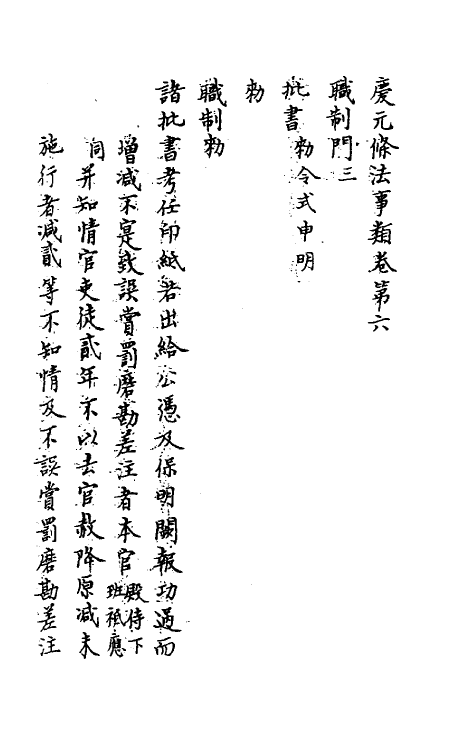 慶元條法事類卷第六
職制門三
批書 勑令式申明
勑
職制勑
諸批書考任印紙若出給公憑及保明關報功過而
增減不寔致誤賞罰磨勘差注者本官殿侍下班祗應
同并知情官吏徒貳年不以去官赦降原減未
施行者減貳等不知情及不誤賞罰磨勘差注